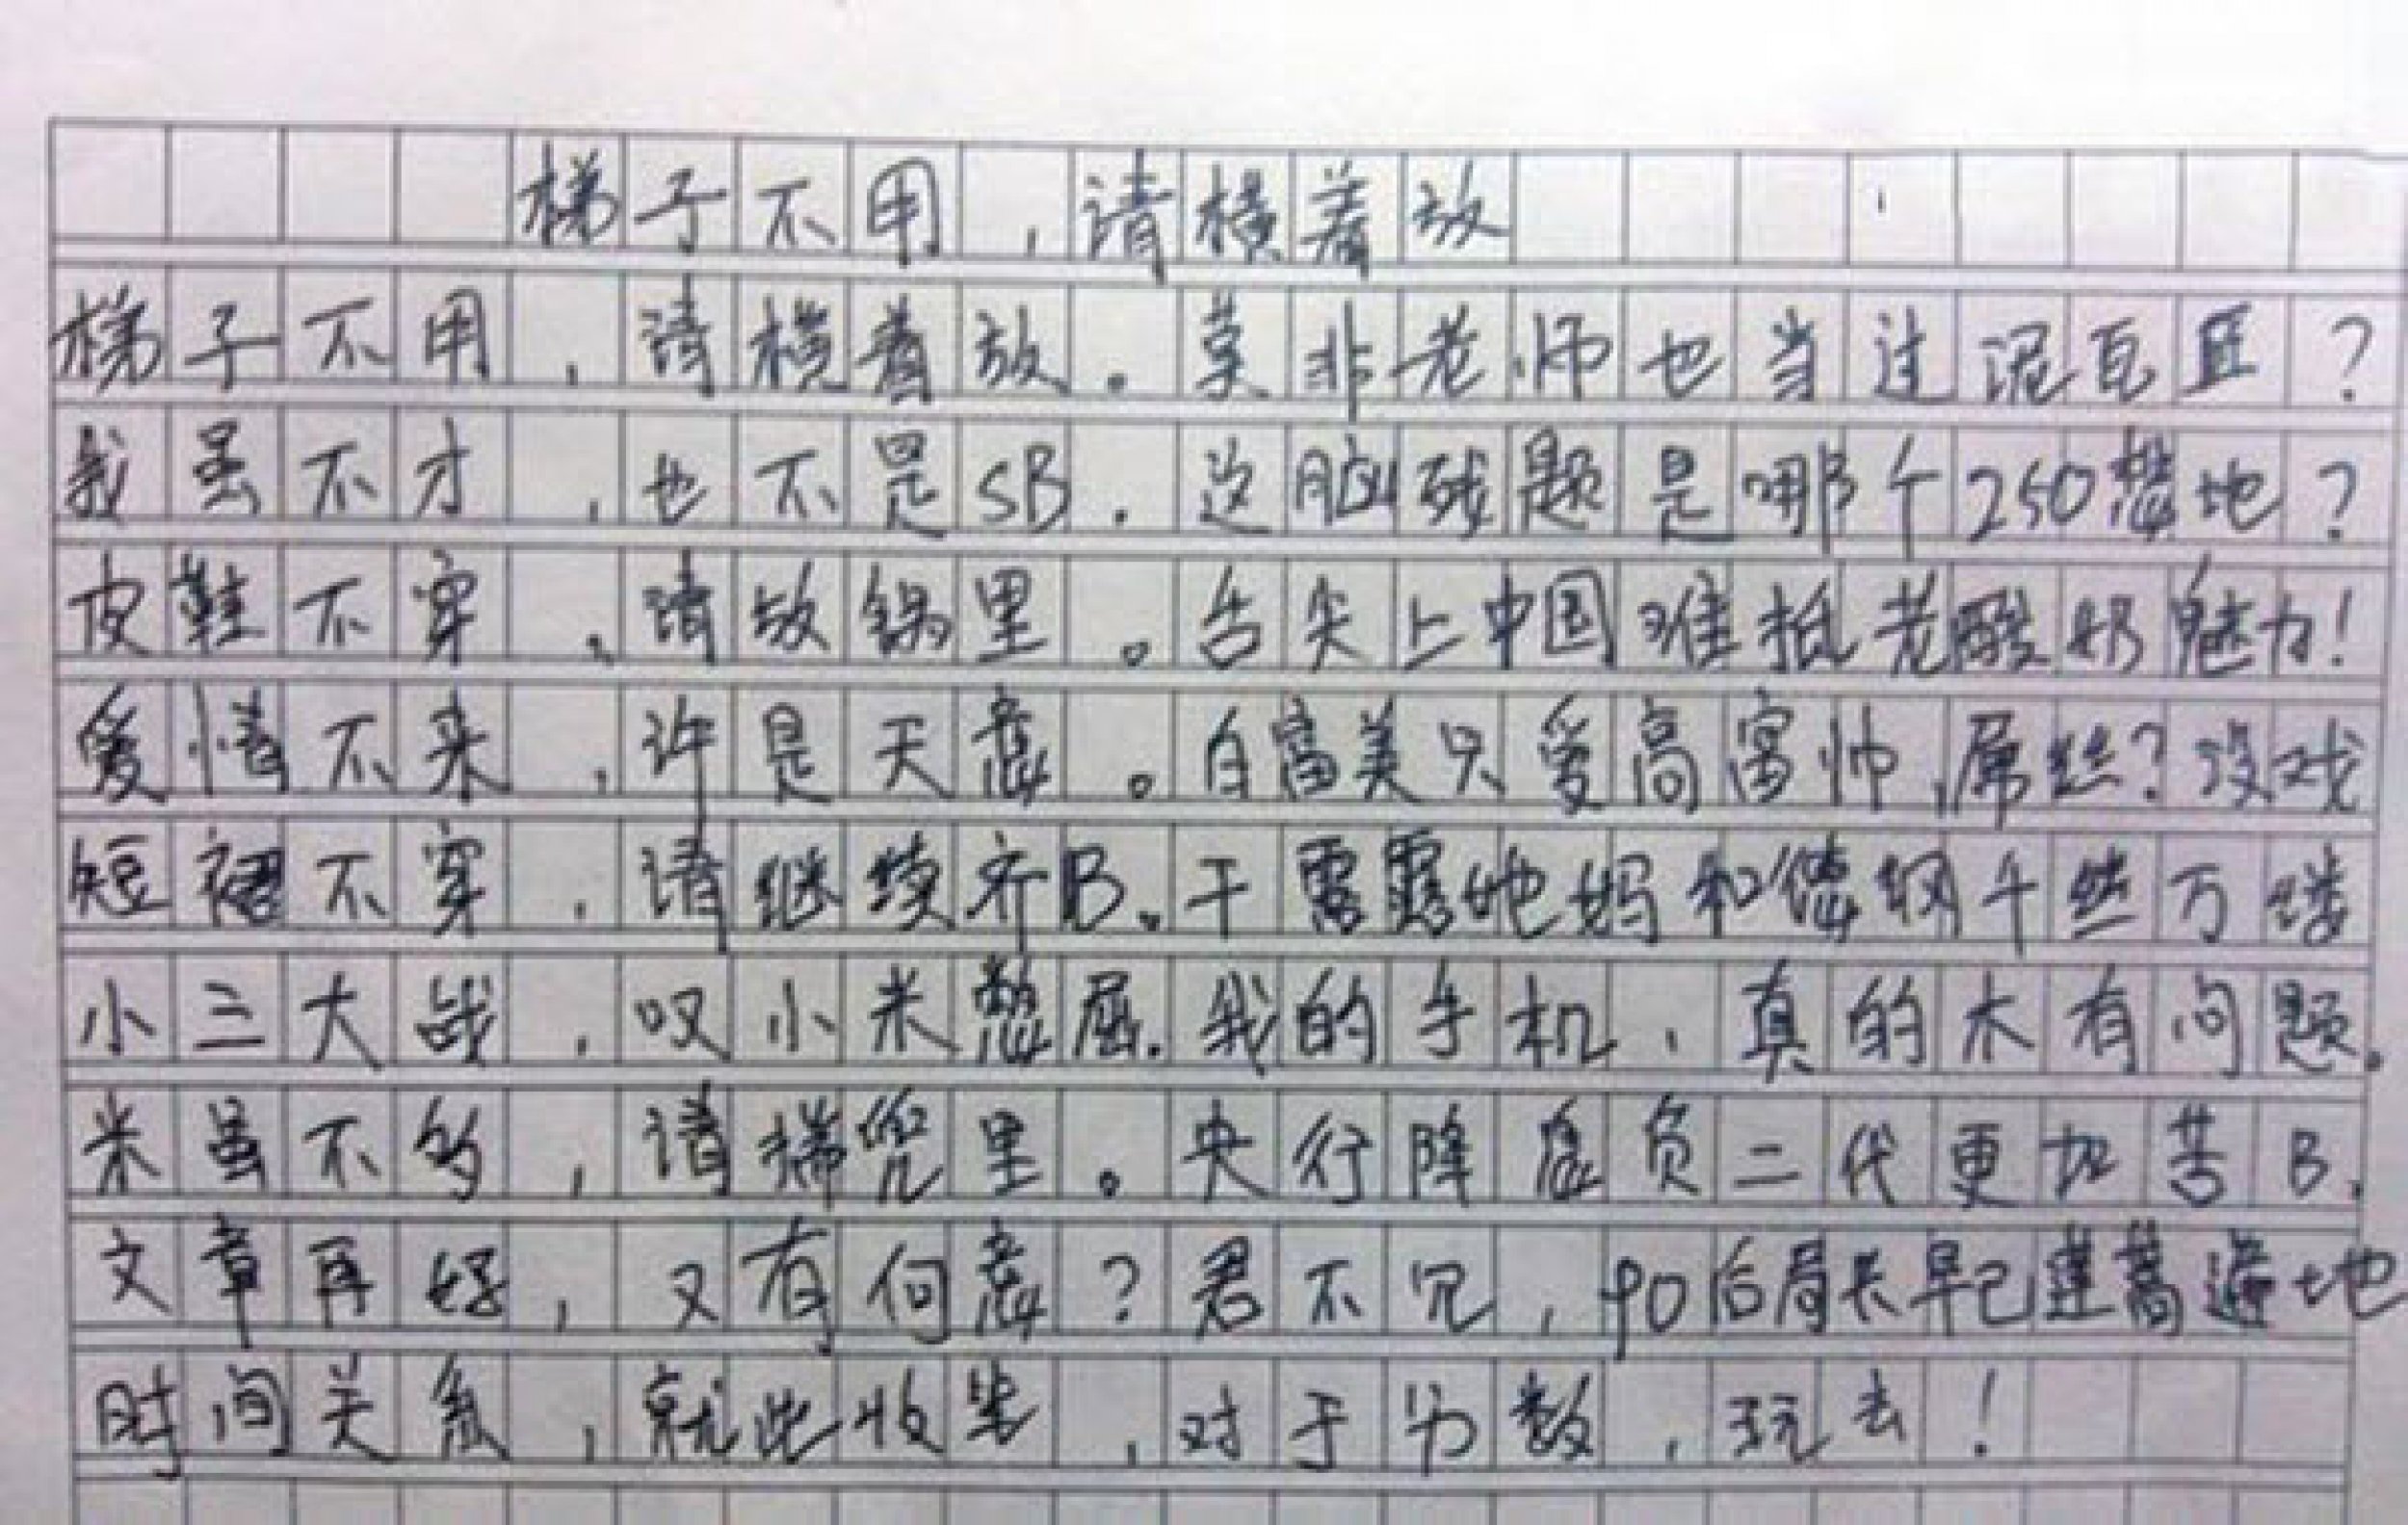 梯子不用，请横着放
梯子不用，请横着放。莫非老师也当过泥瓦匠？
我虽不才，也不是SB.这脑残题是哪个250想地？
皮鞋不穿，请放锅里。舌尖上中国难抵老酸奶魅力！
爱情不来，许是天意。白富美只爱高富帅，屌丝？没戏
短裙不穿，请继续齐B。干露露她妈和德纲千丝万缕
小三大战，叹小米憋屈.我的手机，真的木有问题。
米虽不多，请揣兜里。央行降息负二代更加苦B.
文章再好，又有何意？君不见，90后局长早已蓬蒿遍地
时间关系，就此收笔，对于分数，玩去！